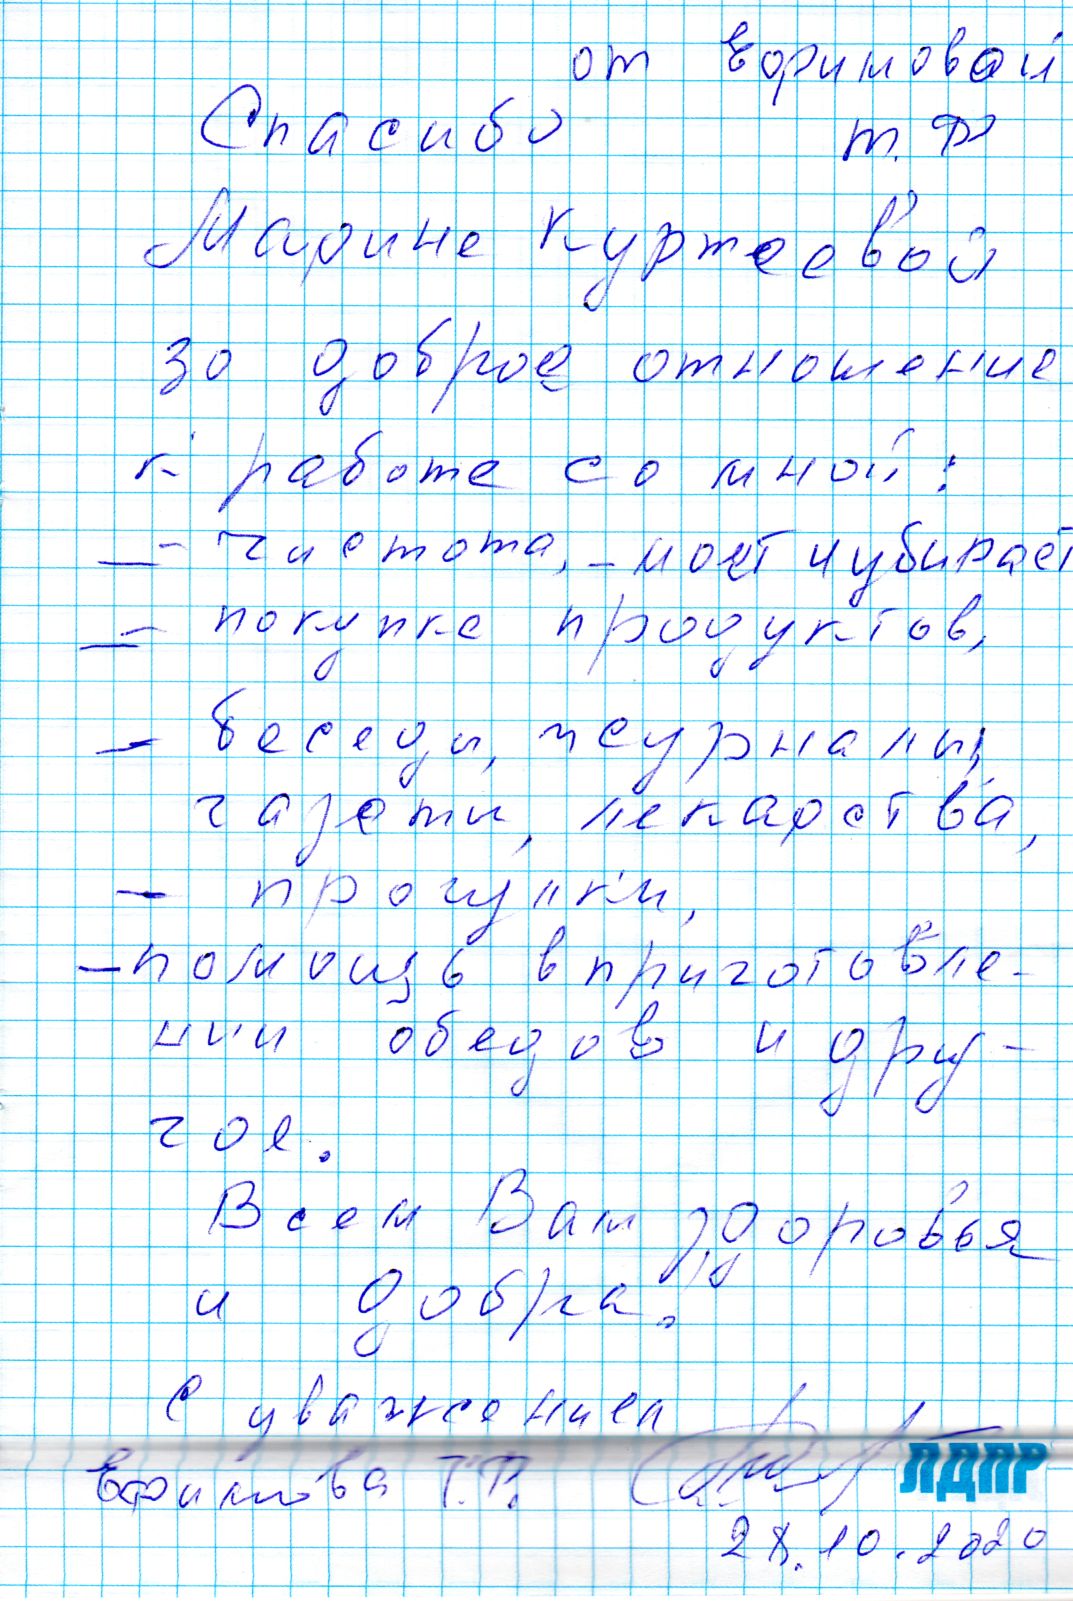 от Ефимовой
Спасибо т. Ф
Марине Куржеевой
за доброе отношение
к работе со мной:
- чистота, - моет и убирает
- покупке продуктов,
- беседы, журналы,
газеты, лекарства,
- прогулки,
- помощь в приготовле-
нии обедов и дру-
гое.
Всем Вам здоровья
и добра.
С уважением
Ефимова Т.Ф. ЛДПР
28.10.2020